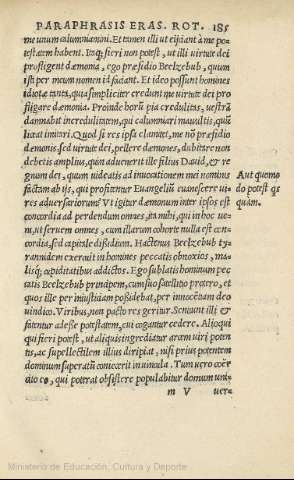 PARAPHRASIS ERAS. ROT. 185
me unum calumniamini. Et tamen illi ut eijciant à me po
testatem habent. Itaq; fieri non potest, ut illi virtute dei
profligent dæmonia, ego præsidio Beelzebub, quum
isti per meum nomen id faciant. Et ideo possunt homines
idiotæ tanta, quia simpliciter credunt me virtute dei pro
fligare dæmonia. Proinde horũ pia credulitas, vestrã
damnabit incredulitatem, qui calumniari mavultis, quã
licet imitari. Quod si res ipsa clamitet, me nõ præsidio
dæmonis, sed virtute dei, pellere dæmones, dubitare non
debetis amplius, quin advenerit ille filius David, & re
gnum dei, quum videatis ad invocationem mei nominis
factam ab ijs, qui profitentur Evangeliũ evanescere vi
res adversariorum. Vt igitur dæmonum inter ipsos est
concordia ad perdendum omnes, ita mihi, qui in hoc ve
ni, ut servem omnes, cum illarum cohorte nulla est con
cordia, sed capitale dissidium. Hactenus Beelzebub ty
rannidem exercuit in homines peccatis obnoxios, ma
lisq; cupiditatibus addictos. Ego sublatis hominum pec
catis Beelzebub principem, cum suo satellitio protero, et
quos ille per iniustitiam possidebat, per innocẽtiam deo
vindico. Viribus, non pacto res geritur. Sentiunt illi &
fatentur adesse potestatem, cui cogantur cedere. Alioqui
qui fieri potest, ut aliquis ingrediatur aram viri poten
tis, ac supellectilem illius diripiat, nisi prius potentem
dominum superatũ coniecerit in vincula. Tum vero coër
cito eo, qui poterat obsistere populabitur domum uni-
m V vers
Aut quomo
do potest qs
quàm.
Ministerio de Educación, Cultura y Deporte